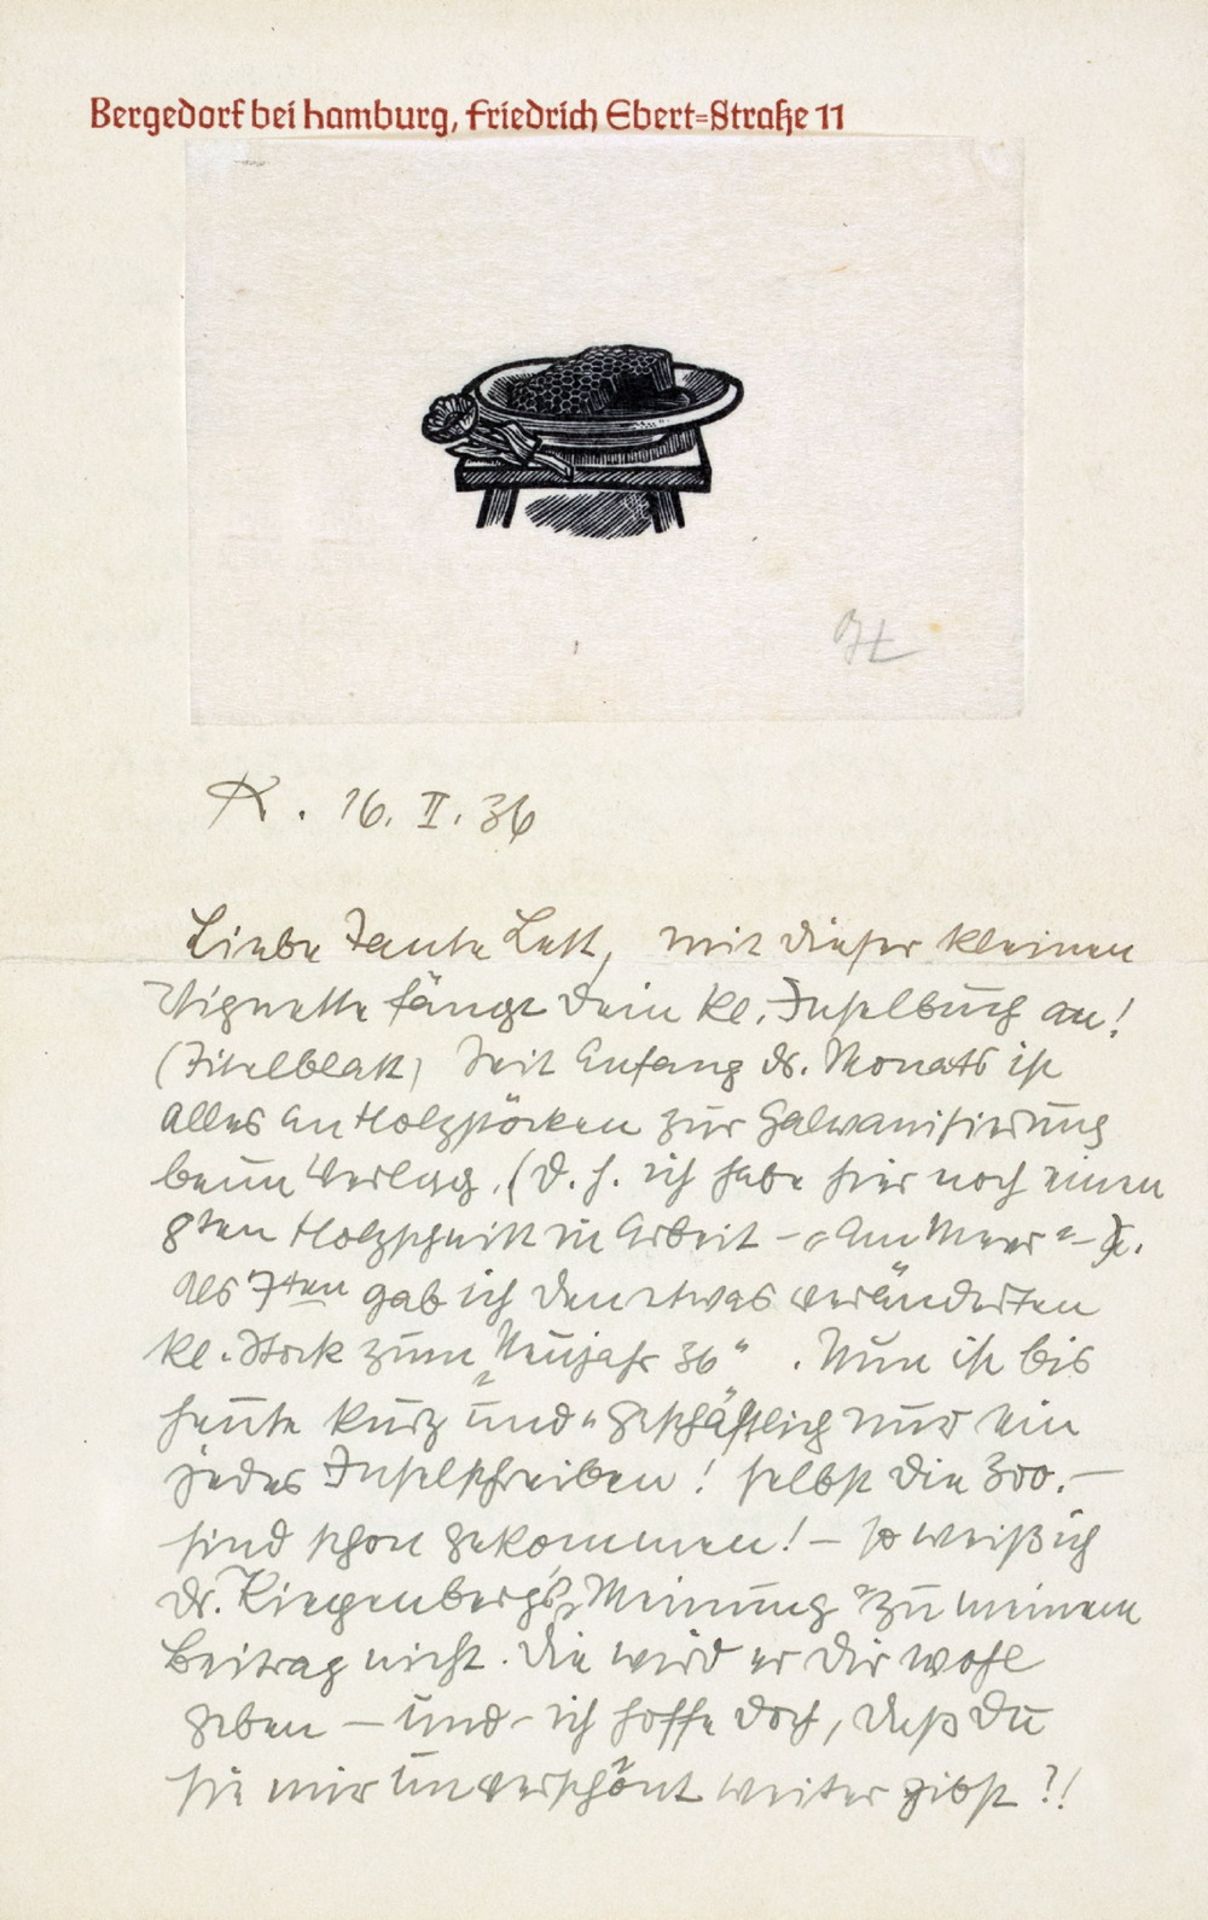 Bergedorf bei Hamburg, Friedrich Ebert=Straße 11
R. 16. II. 36
Liebe Tante Lett, mit dieser kleinen
Vignette fängt Dein kl. Inselbuch an!
(Titelblatt) Seit Anfang ds. Monats ist
Alles an Holzstöcken zur Galvanisierung
beim Verlag. (d. h. ich habe hier noch einen
8ten Holzschnitt in Arbeit – „Am Meer" –).
Als 7ten gab ich den etwas veränderten
kl. Stock zum „Neujahr 36". Nun ist bis
heute kurz „und" geschäftlich nur ein
jedes Inselschreiben! selbst die 300.–
sind schon gekommen! – so weiß ich
Dr. „Meinung" zu meinem
Beitrag nicht. Die wird er Dir wohl
geben – und – ich hoffe doch, daß Du
sie mir unverschönt weiter gibst?!